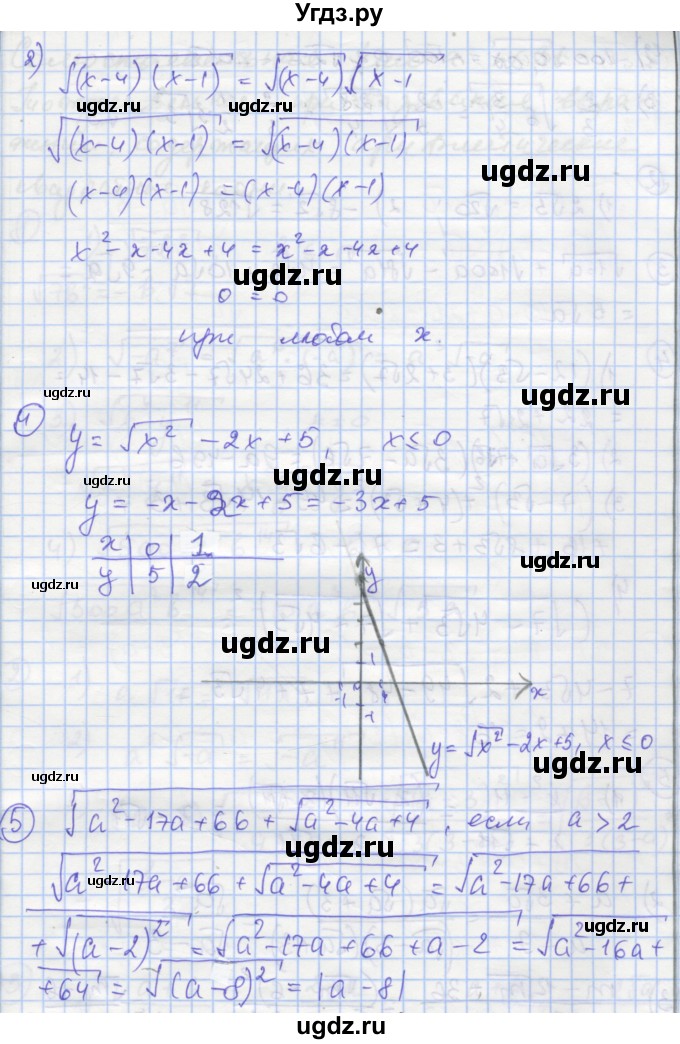 Угдз.ру
2) √((x-4)(x-1)) = √(x-4) √(x-1)
ugdz.ru ugdz.ru
√((x-4)(x-1)) = √((x-4)(x-1))
ugdz.ru
(x-4)(x-1) = (x-4)(x-1)
x² - x - 4x + 4 = x² - x - 4x + 4
ugdz.ru
0 = 0
при любом x.
ugdz.ru
ugdz.ru
④ y = √x² - 2x + 5, x ≤ 0
ugdz.ru
y = -x - 2x + 5 = -3x + 5
ugdz.ru
x | 0 | 1
y | 5 | 2
ugdz.ru
y
ugdz.ru
1
-1 1 x
-1
y = √x² - 2x + 5, x ≤ 0
ugdz.ru
ugdz.ru
⑤ √(a² - 17a + 66 + √(a² - 4a + 4)), если a > 2
ugdz.ru
√(a² - 17a + 66 + √(a² - 4a + 4)) = √(a² - 17a + 66 +
ugdz.ru
+ √(a-2)²) = √(a² - 17a + 66 + a - 2) = √(a² - 16a +
ugdz.ru
+ 64) = √(a-8)² = |a-8|
ugdz.ru
ugdz.ru